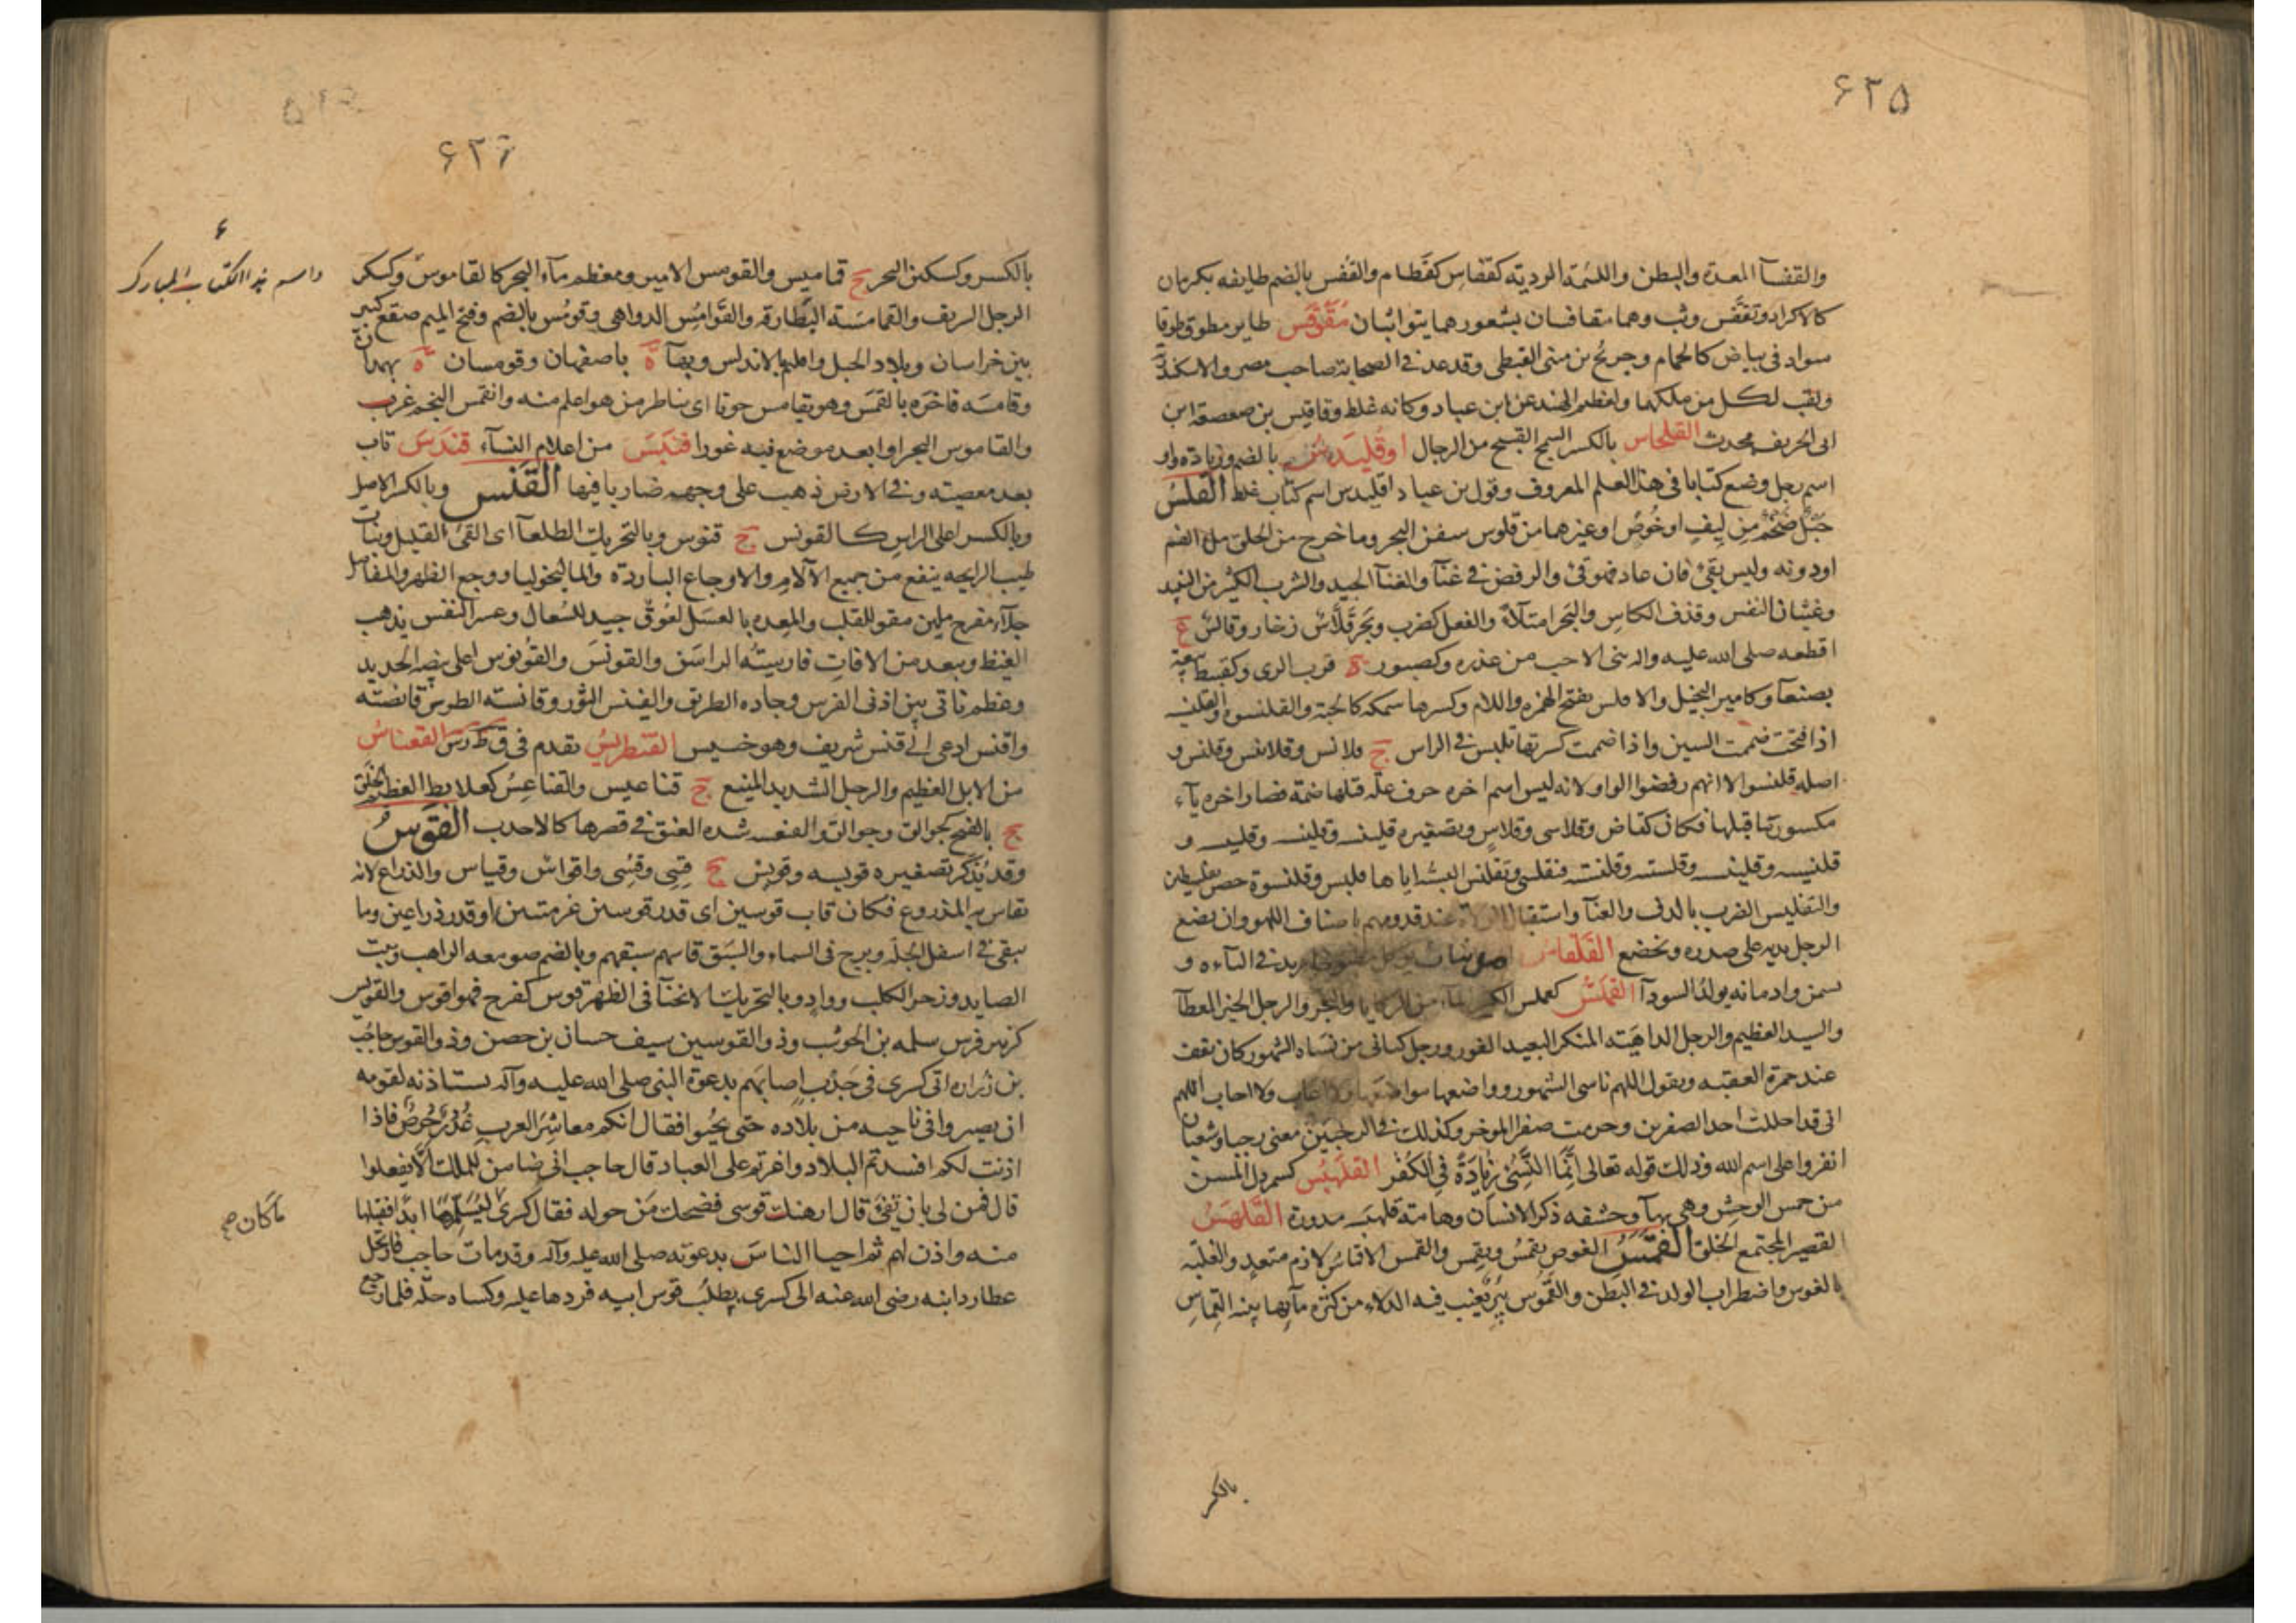 ۶۲۵
والقفسآ المعدة والبطن واللئمة الرديّه كقفاس كقطام والقُفس بالضم طايفه بكرمان
كالاكراد وتقفّس وثب وهما يتقافسان بشعورهما يتواثبان مُقَوقَس طاير مطوق طوقا
سواد فى بياض كالحمام وجريح بن متى القبطى وقد عد فى الصحابة صاحب مصر والاسكندرية
ولقب لكل من ملكها ولعظيم الهند عن ابن عباد وكانه غلط وقاقيس بن صعصعة ابن
ابى الخريف محدث القلحاس بالكسر السمج القبيح من الرجال اوقليدس بالضم وزيادة واو
اسم رجل وضع كتابا فى هذا العلم المعروف وقول بن عباد اقليدس اسم كتاب غلط القَلسُ
حَبل ضخم من ليف او خوص او غيرهما من قلوس سفن البحر وما خرج من الحلق مل الفم
او دونه وليس بقئ فان عاد فهو قئ والرقص فى غنآ والغنآ الجيد والشرب الكثير من النبيذ
وغثيان النفس وقذف الكاس والبحر امتلآء والفعل كضرب وبحر قلاّس زخار وقالس ع
اقطعه صلى الله عليه واله بنى الاحب من عذره وكصبور ة قرب الرى وكقبيط
بصنعآ وكامير البخيل والاقلس بفتح الهمزه واللام وكسرها سمكه كالحية والقلنسوه
اذا فتحت ضممت السين واذا ضممت كسرتها تلبس فى الراس ج قلانس وقلانيس وقلنس و
اصله قلنسوا الا انهم رفضوا الواو لانه ليس اسم اخره حرف علة قبلها ضمة فصار اخره يآء
مكسور ما قبلها فكان كقاض وقلاسى وقلاس وتصغيره
والتقليس الضرب بالدف والغنآ واستقبال الولاة عند قدومهم باصناف اللهو وان يضع
الرجل يديه على صدره ويخضع القلقاس فى الباءه و
يسمن وادمانه يولد السودآ القلمّس كعملس الكثير المآء من الركايا والبحر والرجل الخير المعطآ
والسيد العظيم والرجل الداهية المنكر البعيد الغور ورجل كنانى من نساه الشهور كان يقف
عند جمرة العقبه ويقول اللهم ناسى الشهور وواضعها مواضعها ولا اعاب ولا احاب اللهم
انى قد احللت احد الصفرين وحرمت صفر الموخر وكذلك فى الرجبين يعنى رجبا وشعبان
انفروا على اسم الله وذلك قوله تعالى اِنّمَا النَّسِئُ زِيَادَةٌ فِى الكُفْر القلهبس كسمردل المسن
من حمر الوحش وهى بهآ وحشفه ذكر الانسان وهامة قلهبسه مدورة القلهمس
القصير المجتمع الخلق القَمسُ الغوص يقمُس ويقمِس والقمس الاقماس لازم متعد والغلبة
بالغوص واضطراب الولد فى البطن والقَموس بئر تغيب فيه الدلاء من كثرة مآئها بينه القماس
بالكسر
۶۲۶
بالكسر وكسكين البحر ج قماميس والقومس الامير ومعظم مآء البحر كالقاموس وكسكر
الرجل الشريف والقمامسة البطارقة والقوامس الدواهى وقومس بالضم وفتح الميم صقع كبير
بين خراسان وبلاد الجبل واقليم بالاندلس وبهآ ة باصفهان وقومسان ة بهمدان
وقامسه فاخره بالقمس وهو يقامس حوتا اى يناظر من هو اعلم منه وانقمس النجم غرب
والقاموس البحر او ابعد موضع فيه غورا قنبس من اعلام النسآء قندس تاب
بعد معصيته وفى الارض ذهب على وجهه ضاربا فيها القنس وبالكسر الاصل
وبالكسر اعلى الراس كالقونس ج قنوس وبالتحريك الطلعآ اى القئ القليل ونبات
طيب الرايحه ينفع من جميع الآلام والاوجاع الباردة والماليخوليا ووجع الظهر والمفاصل
جلآء مفرح ملين مقو للقلب والمعده بالعسل لعوق جيد للسعال وعسر النفس يذهب
الغيظ ويبعد من الافات فارسيته الراسن والقونس والقونوس اعلى بيضه الحديد
وعظم ناتى بين اذنى الفرس وجاده الطريق والقينس الثور وقانسه الطير قانصته
واقنس ادعى الى قنس شريف وهو خسيس القنطريس تقدم فى ق ط ر س القنعاس
من الابل العظيم والرجل الشديد المنيع ج قناعيس والقناعس كعلابط العظيم الخلق
ج بالفتح كجوالق وجوالق والقنعسه شده العنق فى قصرها كالاحدب القوس
وقد يُذكر تصغيره قويسه وقويس ج قِسِى وقُسِى واقواس وقياس والذراع لانه
يقاس به المذروع فكان قاب قوسين اى قدر قوسين عربيتين او قدر ذراعين وما
يبقى فى اسفل الجلة وبرج فى السماء والسبق قاسهم سبقهم وبالضم صومعه الراهب وبيت
الصايد وزجر الكلب وواد وبالتحريك الانحنآ فى الظهر قوس كفرح فهو اقوس والقويس
كزبير فرس سلمه بن الحوشب وذو القوسين سيف حسان بن حصن وذو القوس حاجب
بن زراره اتى كسرى فى جدب اصابهم بدعوة النبى صلى الله عليه وآله يستاذنه لقومه
ان يصيروا فى ناحيه من بلاده حتى يحيوا فقال انكم معاشر العرب غُدُر حُرص فاذا
اذنت لكم افسدتم البلاد واغرتم على العباد قال حاجب انى ضامن للملك الّا يفعلوا
قال فمن لى بان تفى قال ارهنك قوسى فضحك من حوله فقال كسرى ليسلمها ابدا فقبلها
منه واذن لهم ثم احيا الناس بدعوته صلى الله عليه وآله وقد مات حاجب فارتحل
عطارد ابنه رضى الله عنه الى كسرى يطلب قوس ابيه فردها عليه وكساه حلّه فلما رجع
واسم هذا الكتاب المبارك
ماكان صح